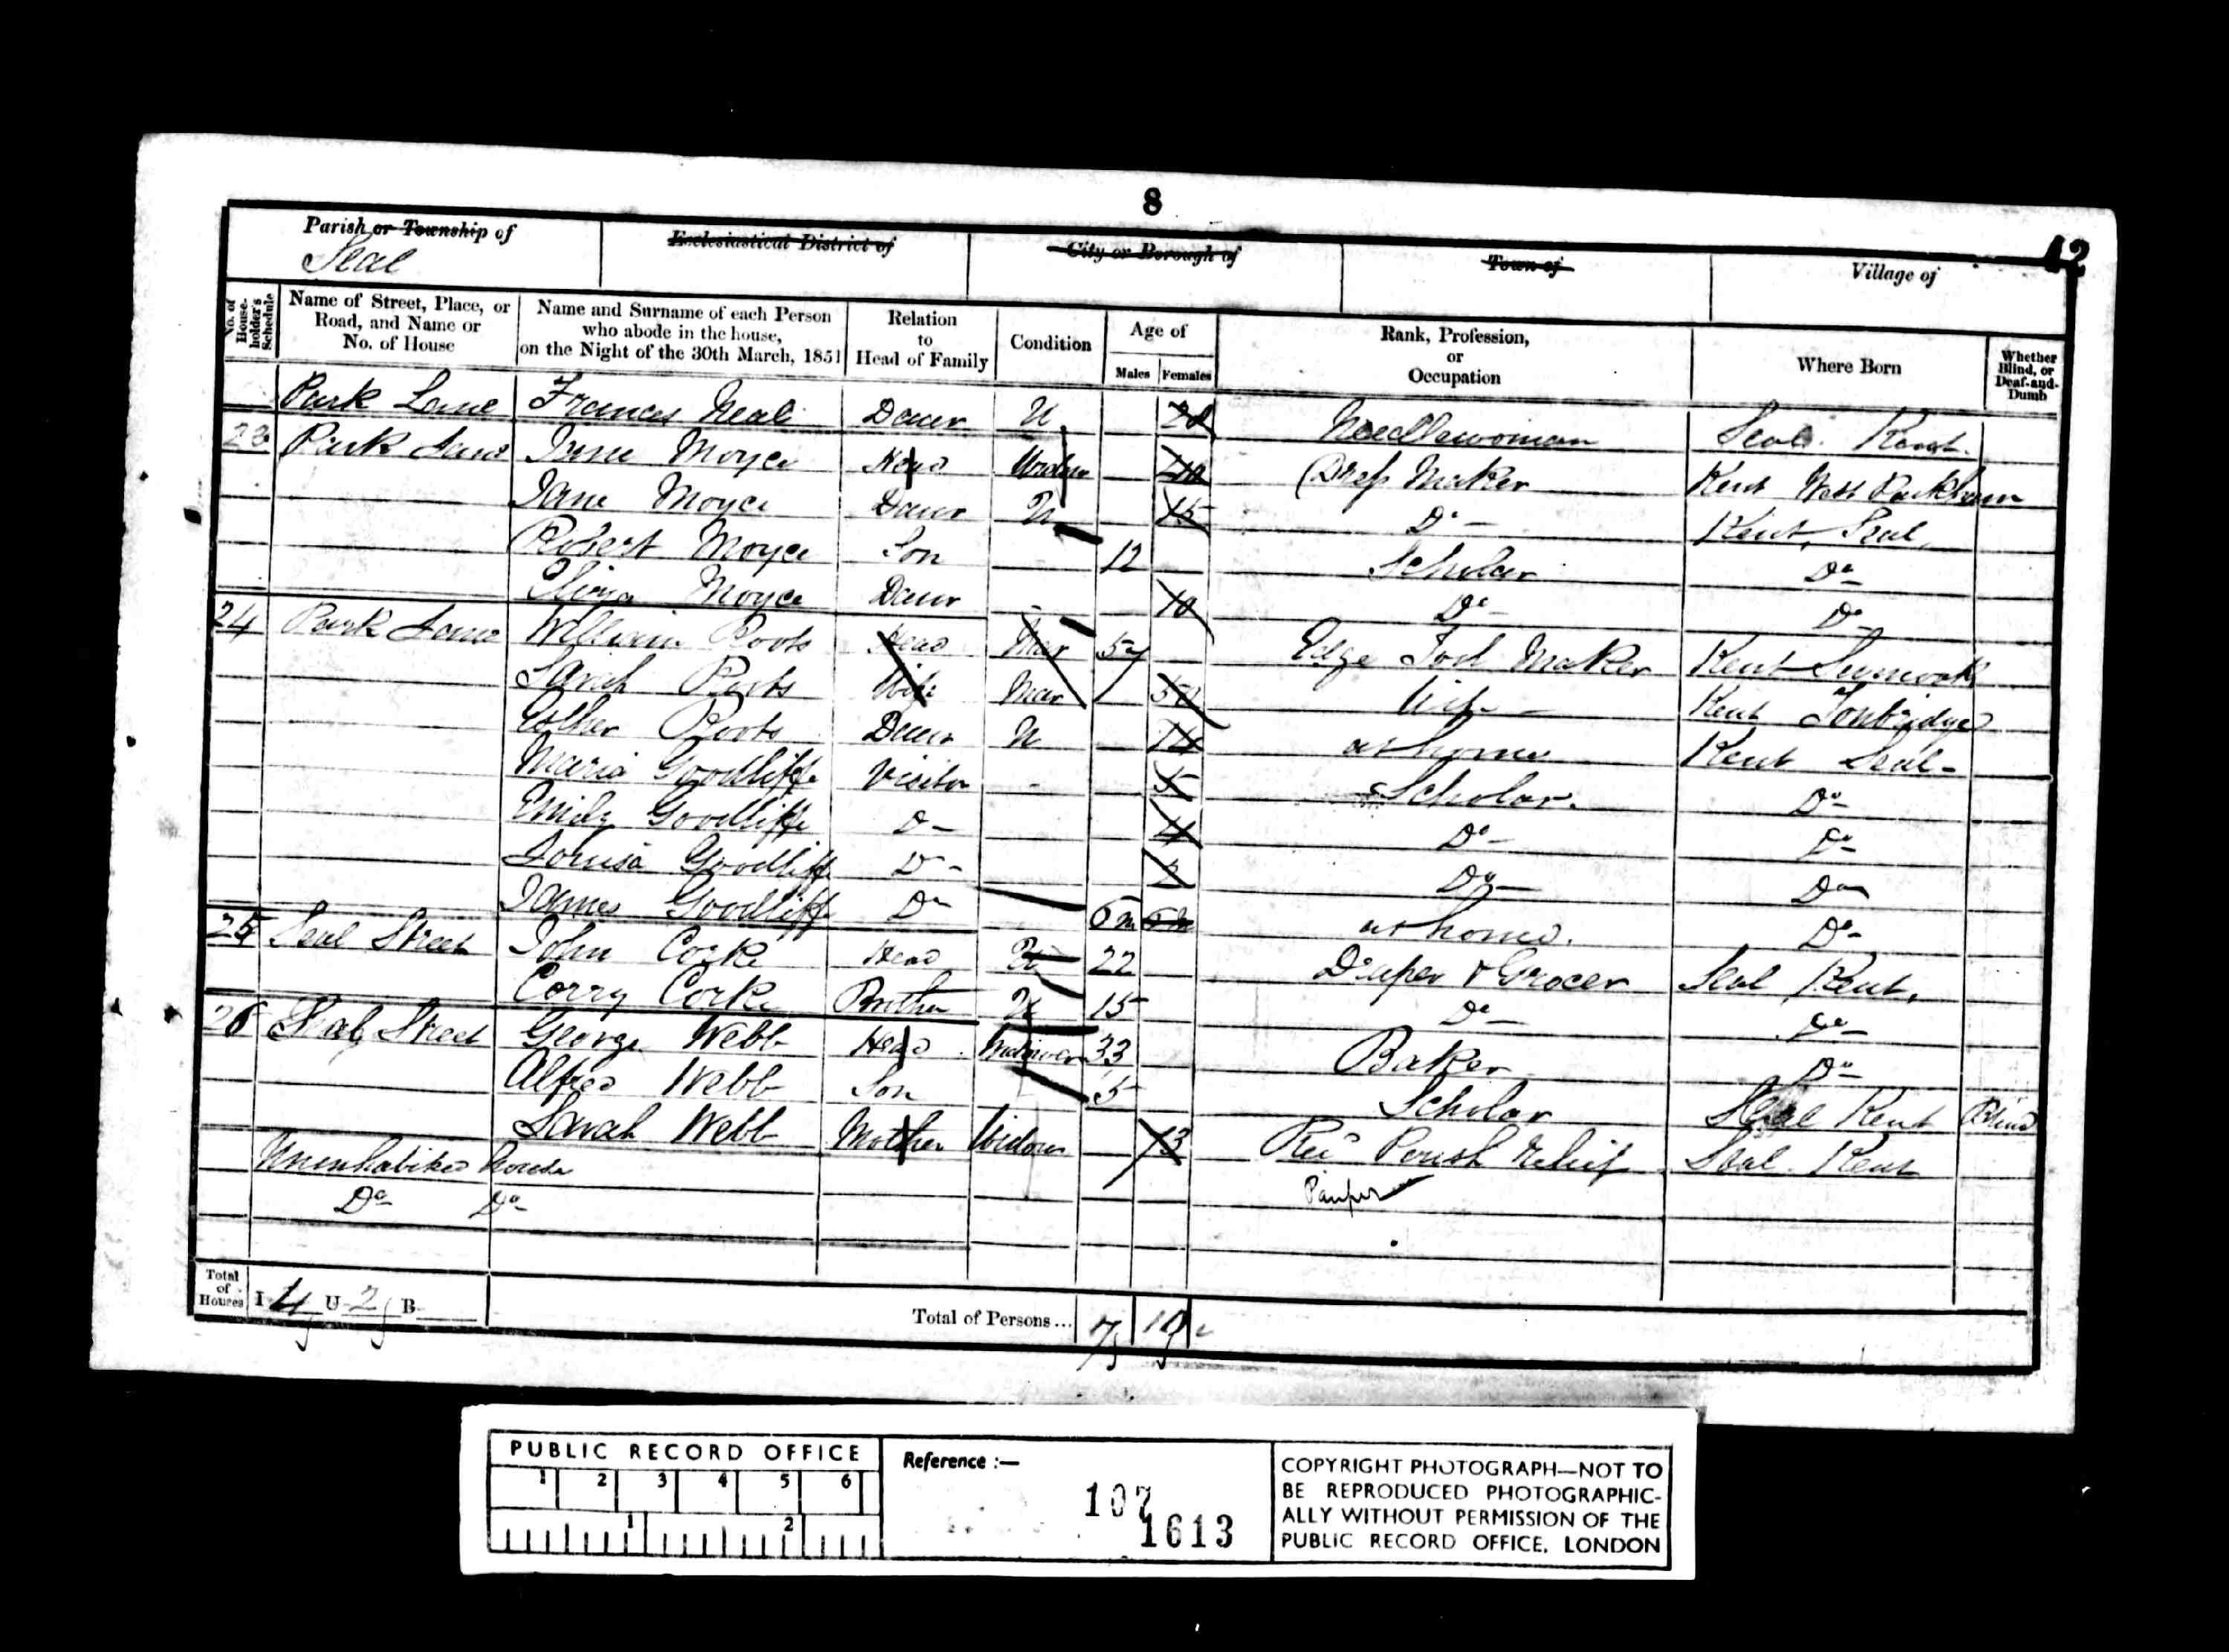 8
12
Parish or Township of Seal
Ecclesiastical District of
City or Borough of
Town of
Village of
No. of House-holder's Schedule
Name of Street, Place, or Road, and Name or No. of House
Name and Surname of each Person who abode in the house, on the Night of the 30th March, 1851
Relation to Head of Family
Condition
Age of
Males Females
Rank, Profession, or Occupation
Where Born
Whether Blind, or Deaf-and-Dumb
Park Lane Frances Neal Daur U Needlewoman Seal Kent
23 Park Lane Jane Moyce Head Widow Dress Maker Kent West
Jane Moyce Daur U 15 Do Kent, Seal
Robert Moyce Son 12 Scholar Do
Eliza Moyce Daur 10 Do Do
24 Park Lane William Roots Head Mar 57 Edge Tool Maker Kent
Sarah Roots Wife Mar Wife Kent Tonbridge
Esther Roots Daur U 14 at home Kent Seal
Maria Goodliffe Visitor 5 Scholar Do
Emily Goodliffe Do 4 Do Do
Louisa Goodliffe Do 2 Do Do
James Goodliffe Do 6m 6m at home. Do
25 Seal Street John Corke Head U 22 Draper & Grocer Seal Kent
Corry Corke Brother U 15 Do Do
26 Seal Street George Webb Head Widower 33 Baker Do
Alfred Webb Son 5 Scholar Seal Kent Blind
Sarah Webb Mother Widow 73 Rec Parish relief Seal Kent
Uninhabited House Pauper
Do Do
Total of Houses I 4 U 2 B
Total of Persons... 7 12
PUBLIC RECORD OFFICE
1 2 3 4 5 6
1 2
Reference :—
107
1613
COPYRIGHT PHOTOGRAPH—NOT TO
BE REPRODUCED PHOTOGRAPHIC-
ALLY WITHOUT PERMISSION OF THE
PUBLIC RECORD OFFICE, LONDON